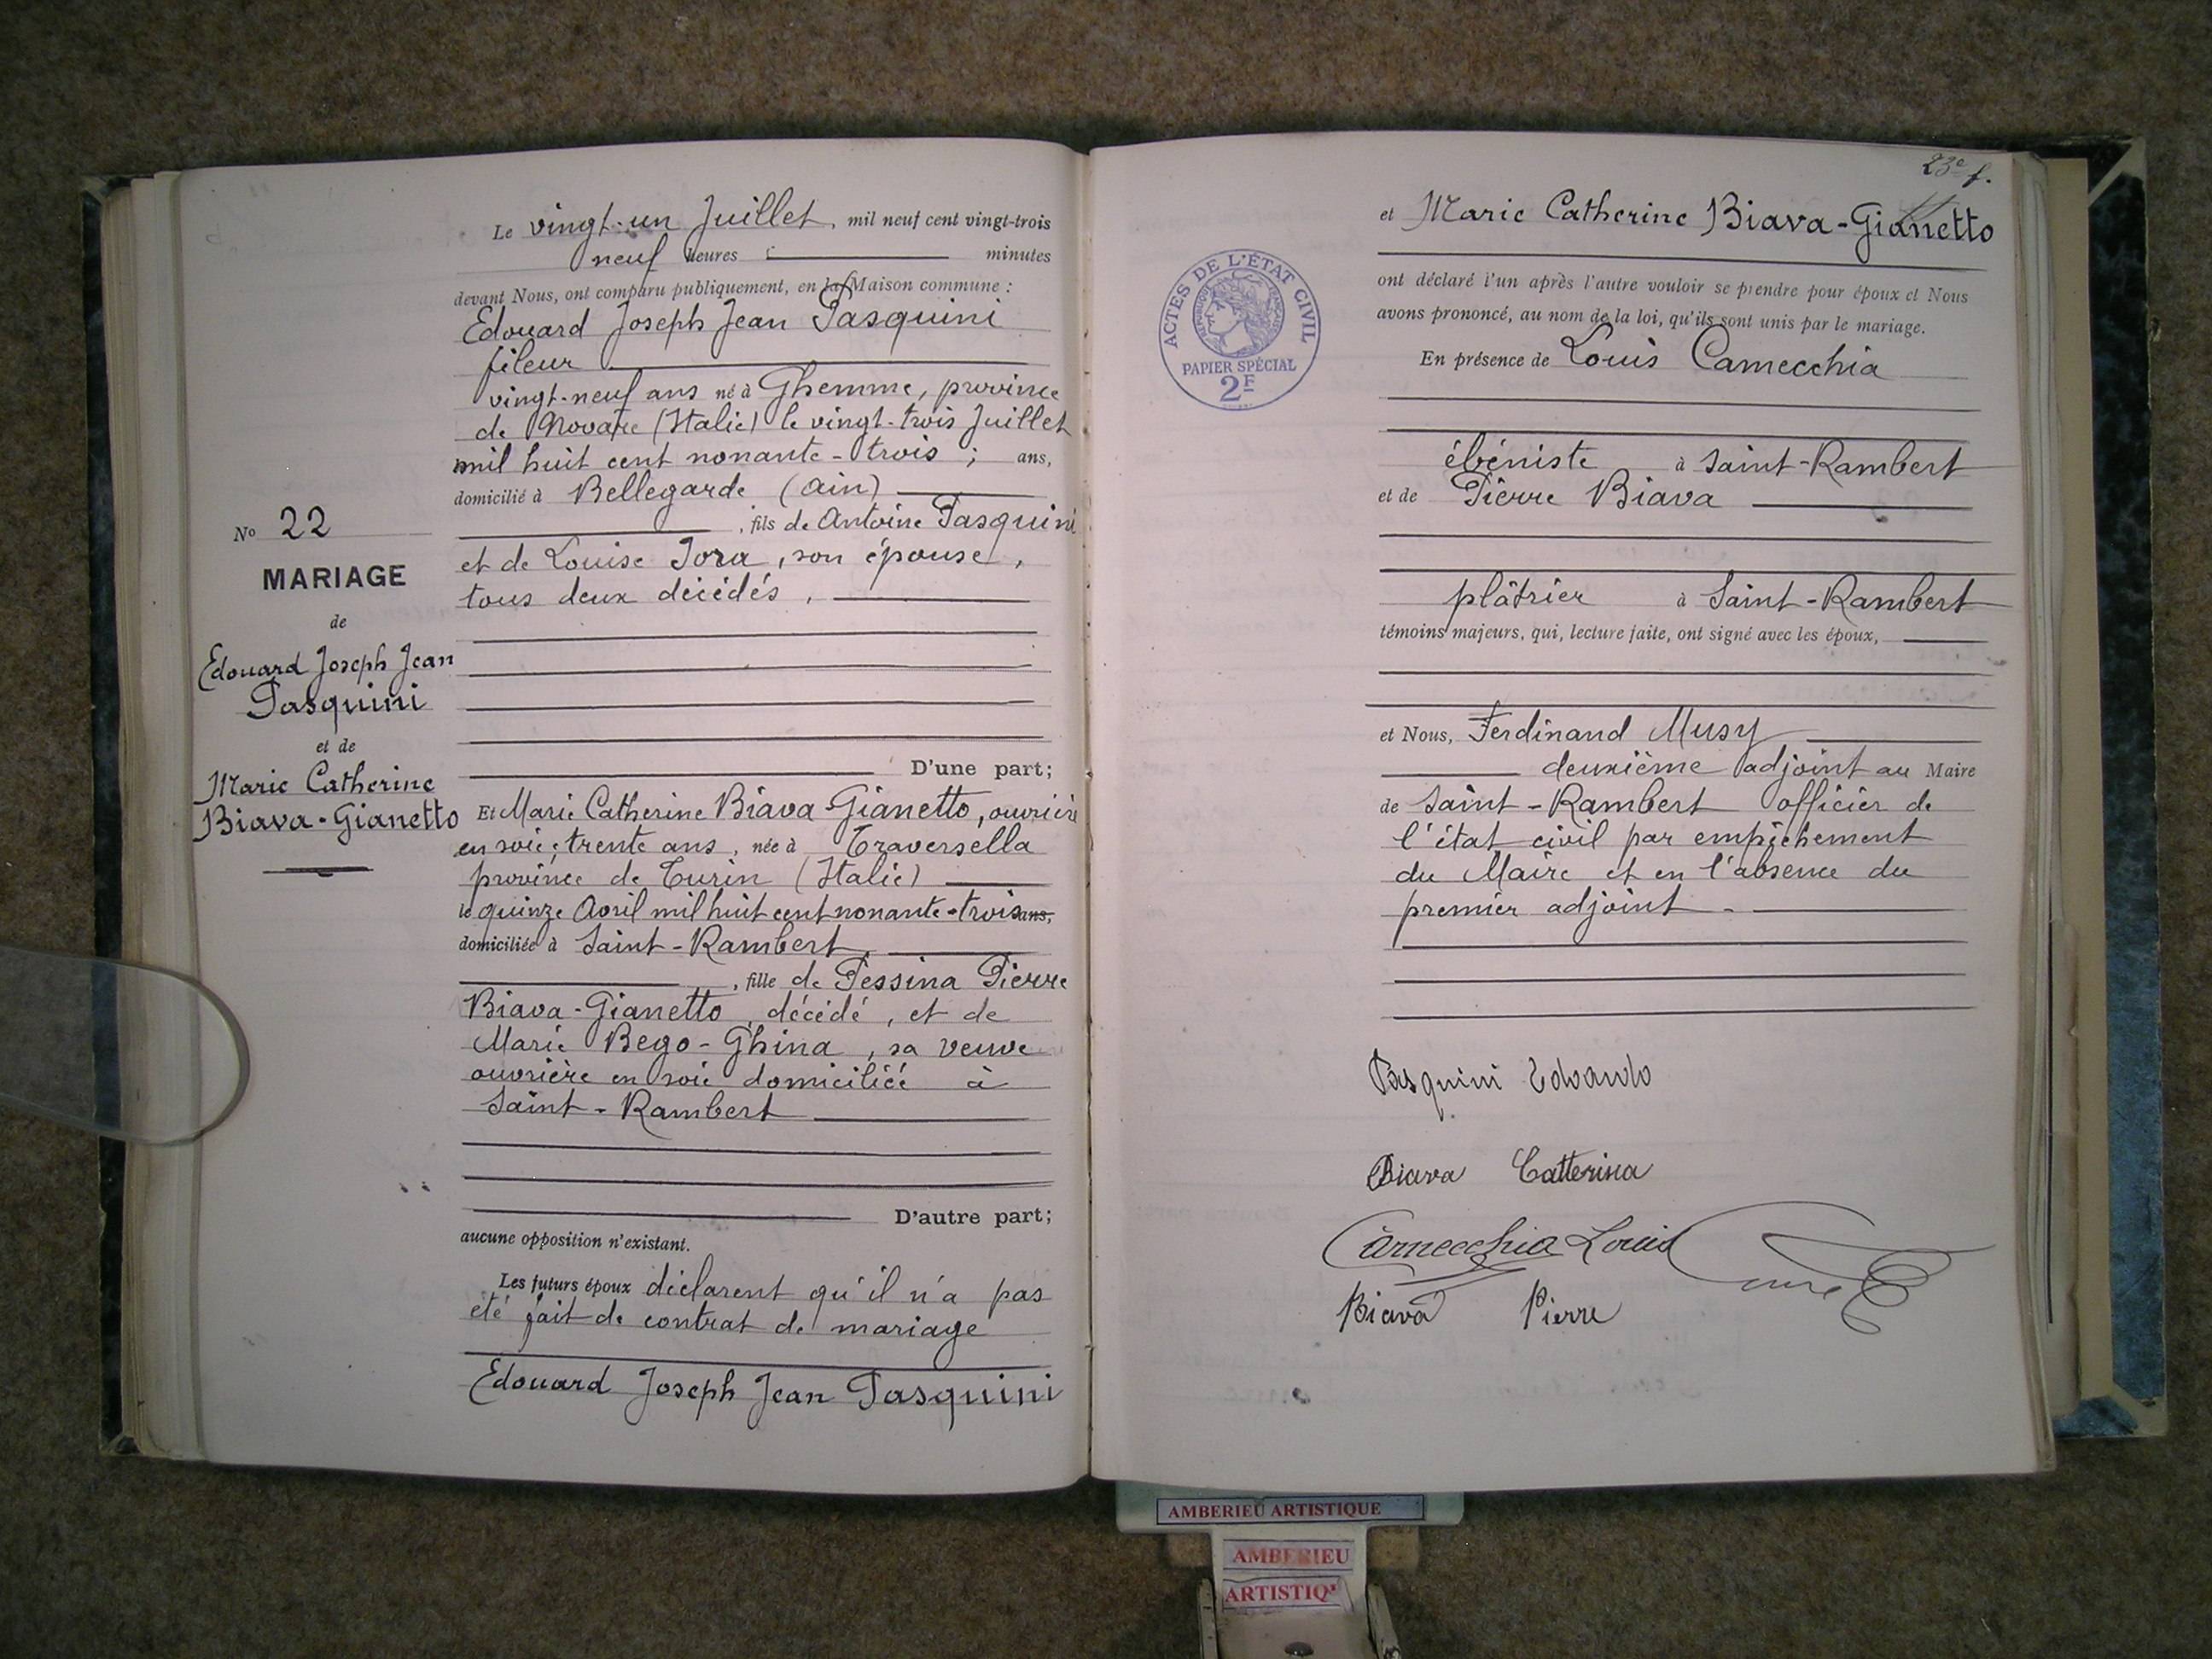 Le vingt-un Juillet, mil neuf cent vingt-trois
neuf heures minutes
devant Nous, ont comparu publiquement, en la Maison commune :
Edouard Joseph Jean Pasquini
fileur
vingt-neuf ans né à Ghemme, province
de Novare (Italie) le vingt-trois Juillet
mil huit cent nonante-trois ; ans,
domicilié à Bellegarde (Ain)
, fils de Antoine Pasquini
et de Louise Jora, son épouse,
tous deux décédés,
No 22
MARIAGE
de
Edouard Joseph Jean
Pasquini
et de
Marie Catherine
Biava-Gianetto
D'une part;
Et Marie Catherine Biava-Gianetto, ouvrière
en soie, trente ans, née à Traversella
province de Turin (Italie)
le quinze Avril mil huit cent nonante-trois ans,
domiciliée à Saint-Rambert,
, fille de Pessina Pierre
Biava-Gianetto, décédé, et de
Marie Bego-Ghina, sa veuve
ouvrière en soie domiciliée à
Saint-Rambert
D'autre part;
aucune opposition n'existant.
Les futurs époux déclarent qu'il n'a pas
été fait de contrat de mariage
Edouard Joseph Jean Pasquini
23e f.
et Marie Catherine Biava-Gianetto
ont déclaré l'un après l'autre vouloir se prendre pour époux et Nous
avons prononcé, au nom de la loi, qu'ils sont unis par le mariage.
ACTES DE L'ÉTAT CIVIL
RÉPUBLIQUE FRANÇAISE
PAPIER SPÉCIAL
2F
En présence de Louis Camecchia
ébéniste à Saint-Rambert
et de Pierre Biava
plâtrier à Saint-Rambert
témoins majeurs, qui, lecture faite, ont signé avec les époux,
et Nous, Ferdinand Musy
deuxième adjoint au Maire
de Saint-Rambert officier de
l'état civil par empêchement
du Maire et en l'absence du
premier adjoint.
Pasquini Edoardo
Biava Catterina
Camecchia Louis
Biava Pierre
AMBERIEU ARTISTIQUE
AMBERIEU
ARTISTIQ